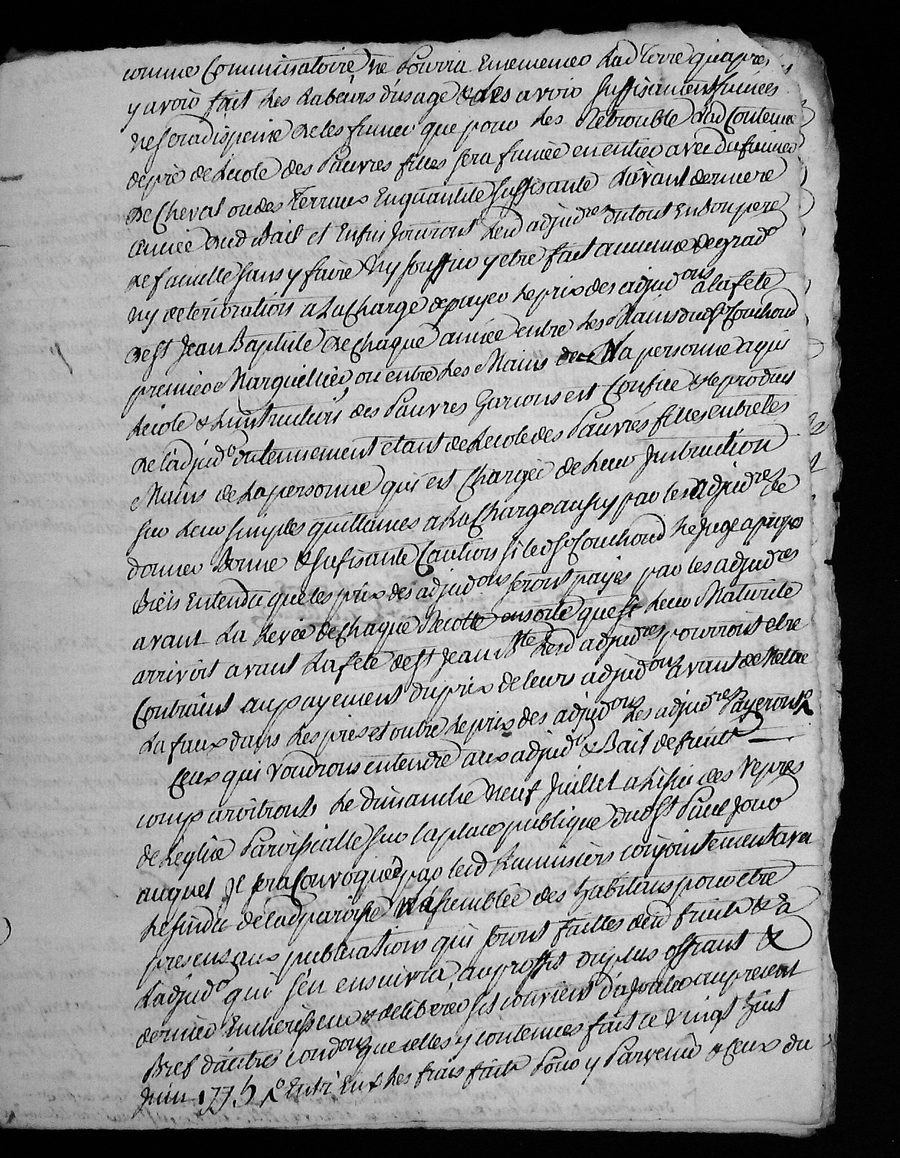 comme Comminatoire ne Pourra Ensemencer Lad. Terre qu'apres
y avoir fait Les Labeurs d'usage & Les avoir suffisament fumées
ne sera dispensé de les fumer que pour Les Retrouble Lad. Contenue
de pré de Lecole des Pauvres filles sera fumée en entier avec du fumier
de Cheval ou des Terraux En quantité suffisante L'avant derniere
année dud. Bail et Enfin Jouiront Lesd. adjud.res du tout En bon pere
de famille sans y faire Ny souffrir y etre fait aucune degrad.
ny deteriorations a La Charge de payer Le prix des adjud.ons a la fete
de St Jean Baptiste de chaque année entre Les Mains du Sr Couchoud
premier Marguillier ou entre Les Mains de La personne a qui
L'école & L'instruction des Pauvres Garcons est Confiée & Le produit
de L'adjud. du tennement etant de Lecole des Pauvres filles entre les
Mains de La personne qui est Chargée de Leur Instruction
sur Leurs simples quittances a La Charge aussy par les adjud.res de
donner Bonne & sufisante Caution si led. Sr Couchoud Le Juge a propo
Bien Entendu que les prix des adjud.ons seront payés par les adjud.res
avant La Levée de chaque Recolte ensorte que si Leur Maturité
arrivoit avant La fete de St Jean B.te Lesd. adjud.res pourront etre
Contraint au payement du prix de leurs adjud.ons avant de Mettre
La faux dans Les prés et outre Le prix des adjud.ons Les adjud.res Payeront
Ceux qui voudront entendre aux adjud. & Bail desd. fruits
comparoitront Le dimanche neuf Juillet a L'issüe des Vepres
de L'eglise Paroissialle sur la place publique dud. St Paul Jour
auquel Il sera Convoquée par led. Ramusiers conjointement avec
Le sindic de lad. paroisse L'assemblée des habitans pour etre
presens aux publications qui seront faittes desd. fruits & a
L'adjud. qui s'en ensuivra au proffit du plus offrant &
dernier Encherisseur & deliberé s'il convient d'ajouter au present
Bref d'autres cond.ons que celles y contenues fait ce vingt huit
Juin 1775 Entre Eux Les frais faits Pour y Parvenir & Ceux du